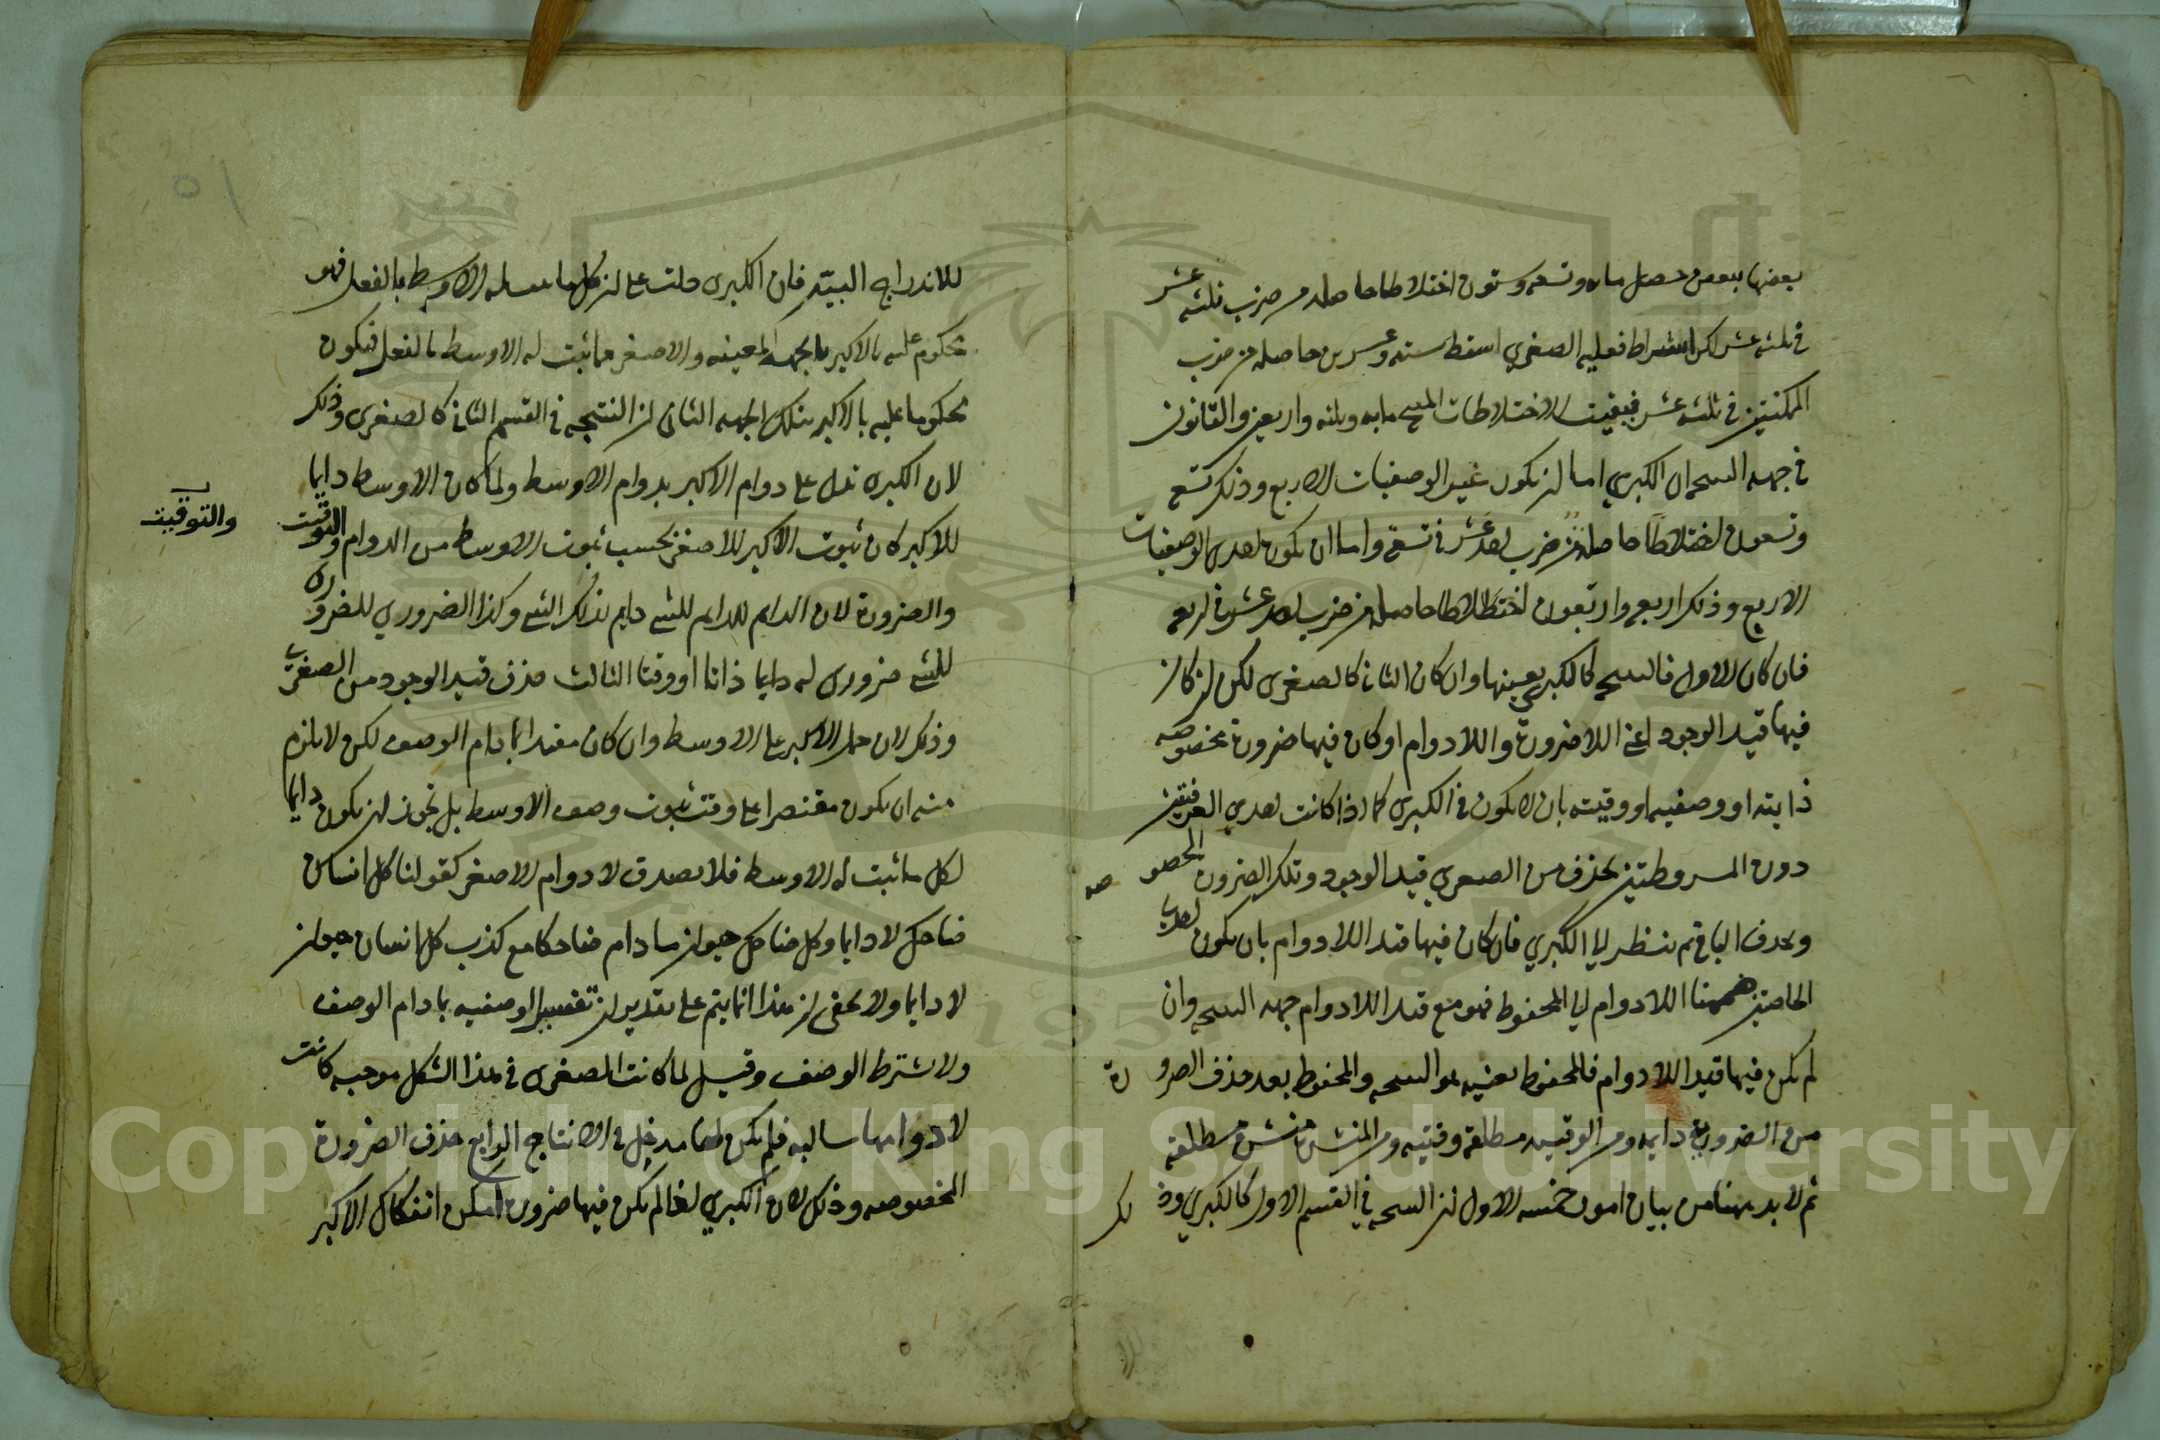 بعضها ببعض حصل مايه وتسعه وستون اختلاطا حاصله من ضرب ثلثه عشر
في ثلثه عشر لكن اشتراط فعليه الصغري اسقط سته وعشرين حاصله من ضرب
الممكنتين في ثلثه عشر فبقيت الاختلاطات المنتجه مايه وثلثه واربعين والقانون
في جهه النتيجه ان الكبري اما ان تكون غير الوصفيات الاربع وذلك تسع
وتسعون اختلاطا حاصله من ضرب احد عشر في تسعه واما ان تكون احدي الوصفيات
الاربع وذلك اربعه واربعون اختلاطا حاصله من ضرب احد عشر في اربعه
فان كان الاول فالنتيجه كالكبري بعينها وان كان الثاني كالصغري لكن ان كان
فيها قيد الوجود اعني اللاضرورة واللادوام او كان فيها ضرورة مخصوصه
ذاتيه او وصفيه او وقتيه بان لا يكون في الكبري كما اذا كانت احدي العرفيتين
دون المشروطتين يحذف من الصغري قيد الوجود وتلك الضرورة المخصوصه
ويحذف الباقي ثم ننظر الي الكبري فان كان فيها قيد اللادوام بان يكون احدي
الخاصتين ضممنا اللادوام الي المحفوظ فهو مع قيد اللادوام جهه النتيجه وان
لم يكن فيها قيد اللادوام فالمحفوظ بعينه هو النتيجه والمحفوظ بعد حذف الضرورة
من الضرورية دايمه ومن الوقتيه مطلقة وقتيه ومن المنتشرة منتشرة مطلقه
ثم لا بد ههنا من بيان امور خمسه الاول ان النتيجه في القسم الاول كالكبري وذلك
للاندراج البين فان الكبري دلت علي ان كل ما ثبت له الاوسط بالفعل فهو
محكوم عليه بالاكبر بالجهه المعينه والاصغر مما ثبت له الاوسط بالفعل فيكون
محكوما عليه بالاكبر بتلك الجهه الثاني ان النتيجه في القسم الثاني كالصغري وذلك
لان الكبري تدل علي دوام الاكبر بدوام الاوسط ولما كان الاوسط دايما
للاكبر كان ثبوت الاكبر للاصغر بحسب ثبوت الاوسط من الدوام والتوقيت
والتوقيت
والضرورة لان الدايم للدايم للشي دايم لذلك الشي وكذا الضروري للضروري
للشي ضروري له دايما ذاتا او وقتا الثالث حذف قيد الوجود من الصغري
وذلك لان حمل الاكبر علي الاوسط وان كان مقيدا بما دام الوصف لكن لا يلزم
منه ان يكون مقتصرا علي وقت ثبوت وصف الاوسط بل يجوز ان يكون دايما
لكل ما ثبت له الاوسط فلا يصدق لا دوام الاصغر كقولنا كل انسان
ضاحك لا دايما وكل ضاحك حيوان ما دام ضاحكا مع كذب كل انسان حيوان
لا دايما ولا يخفي ان هذا انما يتم علي تقدير ان تفسير الوصفيه بما دام الوصف
ولا شترط الوصف وقيل لما كانت الصغري في هذا الشكل موجبه كانت
لا دوامها سالبه فلم يكن لها مدخل في الانتاج الرابع حذف الضرورة
المخصوصه وذلك لان الكبري لما لم يكن فيها ضرورة امكن انفكاك الاكبر
Copyright © King Saud University
1957